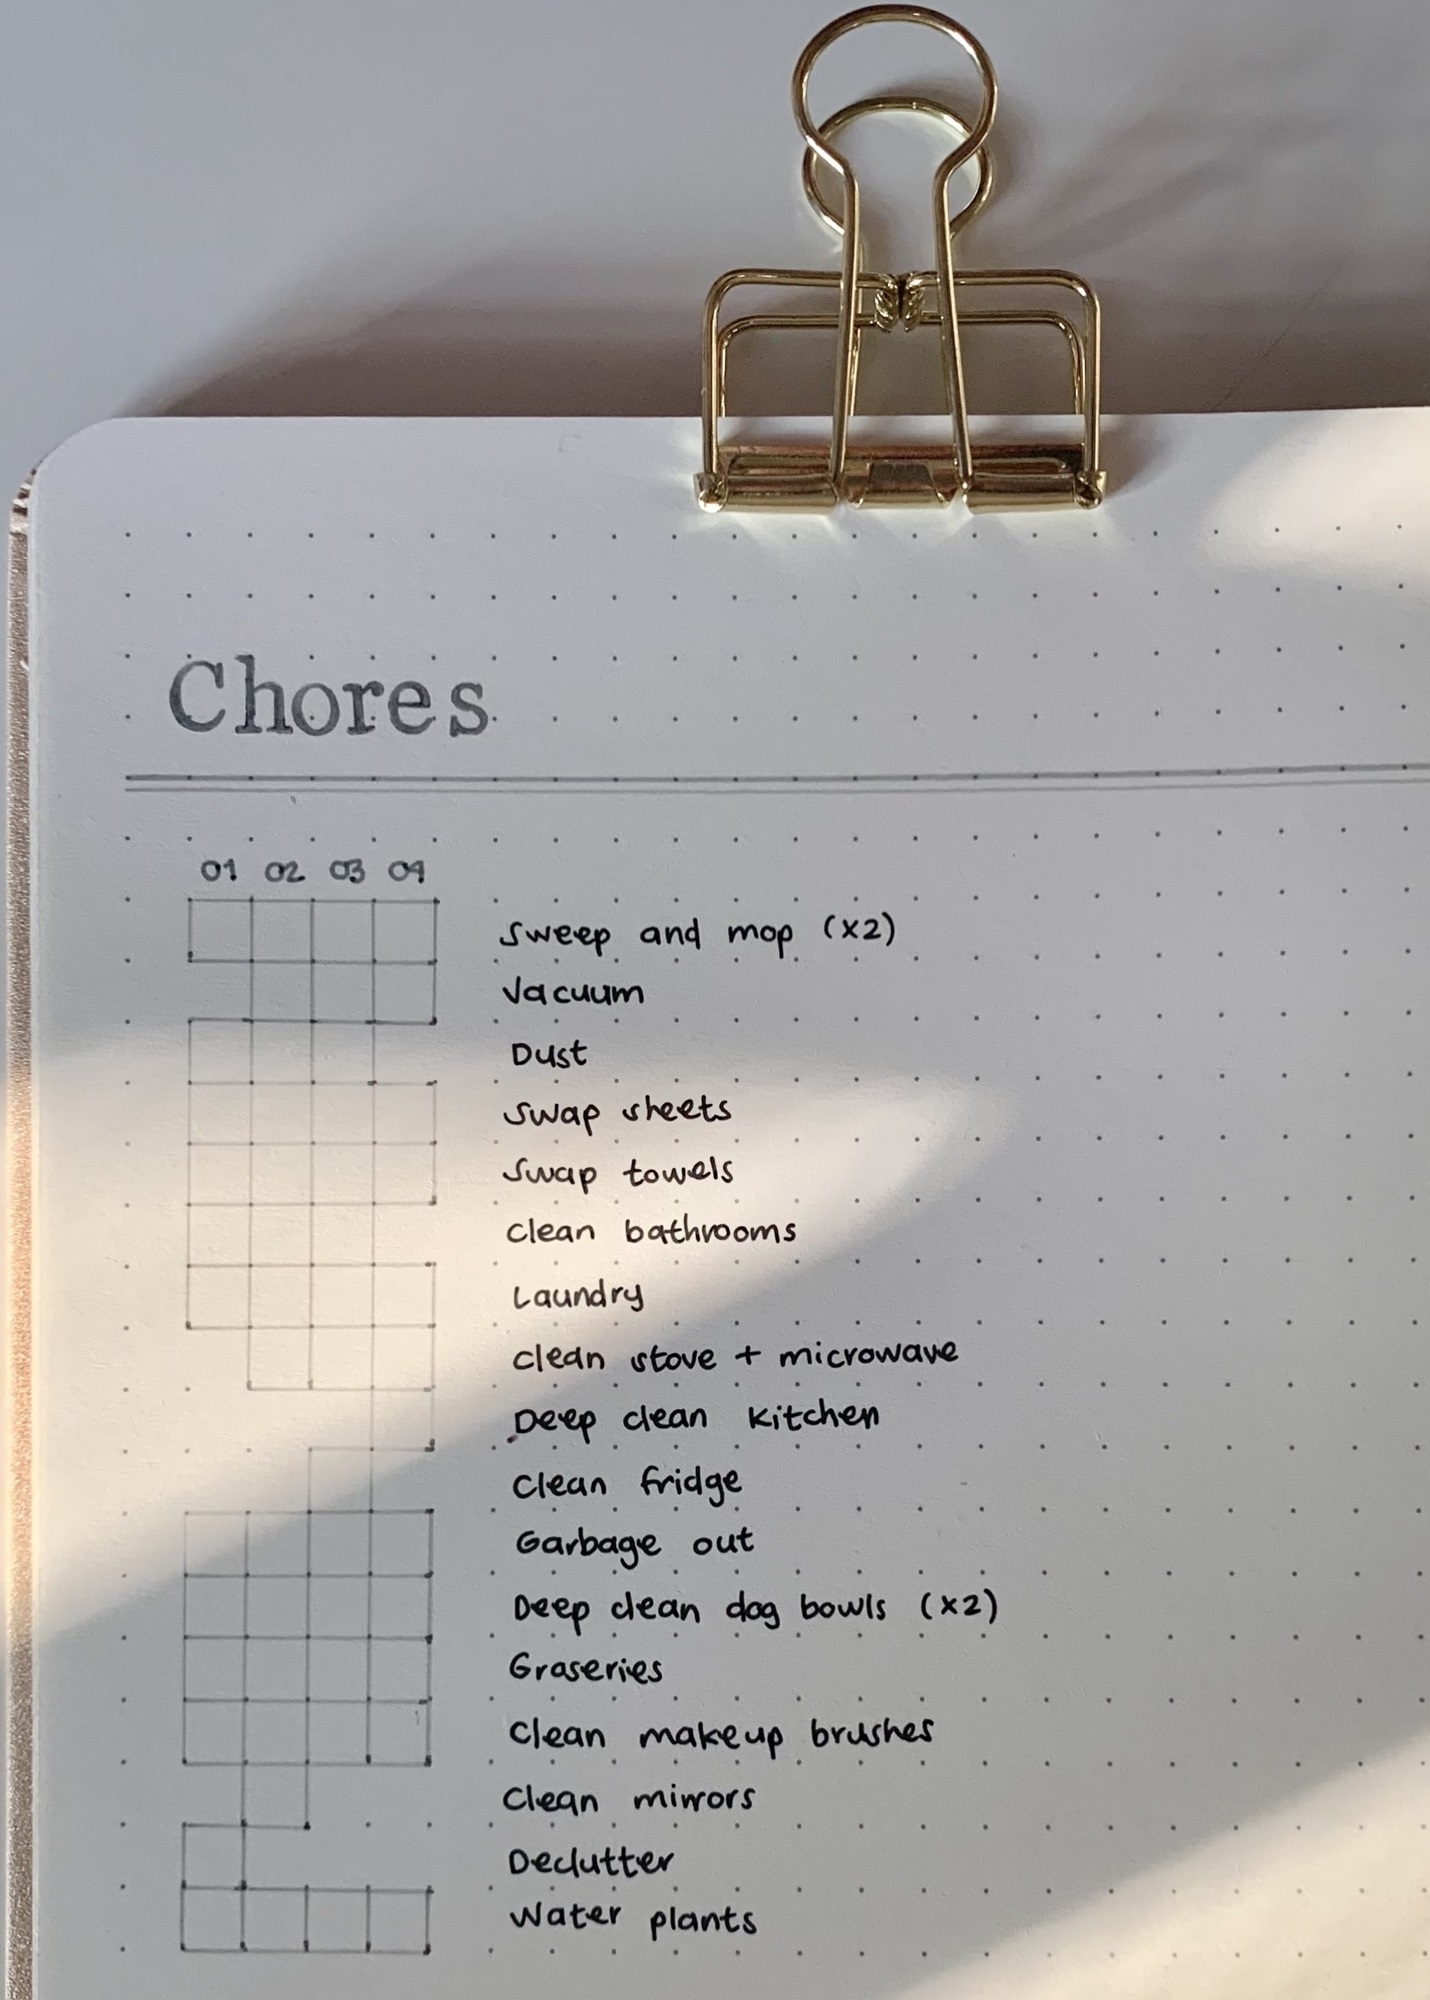 Chores
01 02 03 04
Sweep and mop (x2)
Vacuum
Dust
Swap sheets
Swap towels
Clean bathrooms
Laundry
Clean stove + microwave
Deep clean kitchen
Clean fridge
Garbage out
Deep clean dog bowls (x2)
Groseries
Clean makeup brushes
Clean mirrors
Declutter
Water plants